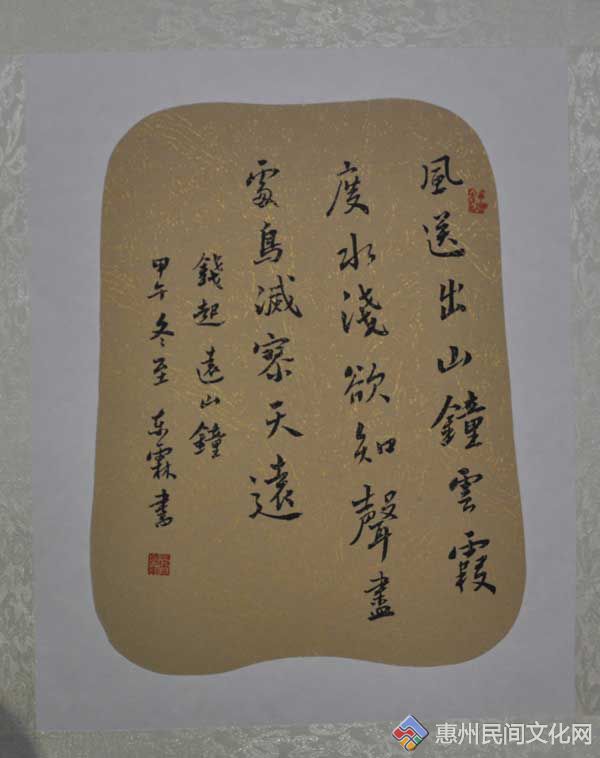 風送出山鐘雲霞
度水淺欲知聲盡
處鳥滅寥天遠
錢起遠山鐘
甲午冬至東霖書
惠州民间文化网